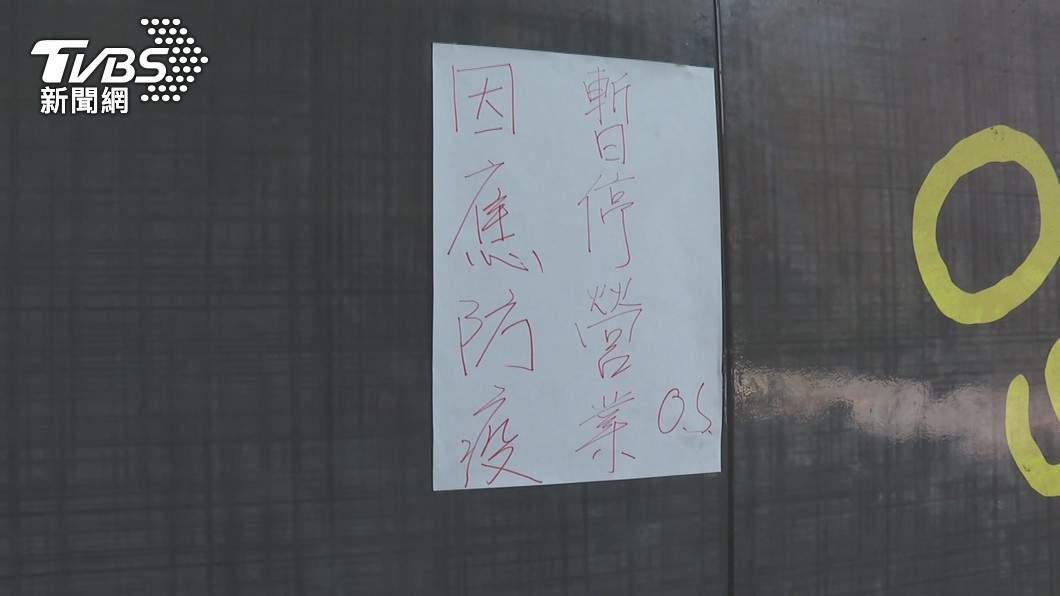 TVBS
新聞網
因應防疫
暫停營業
O.S.